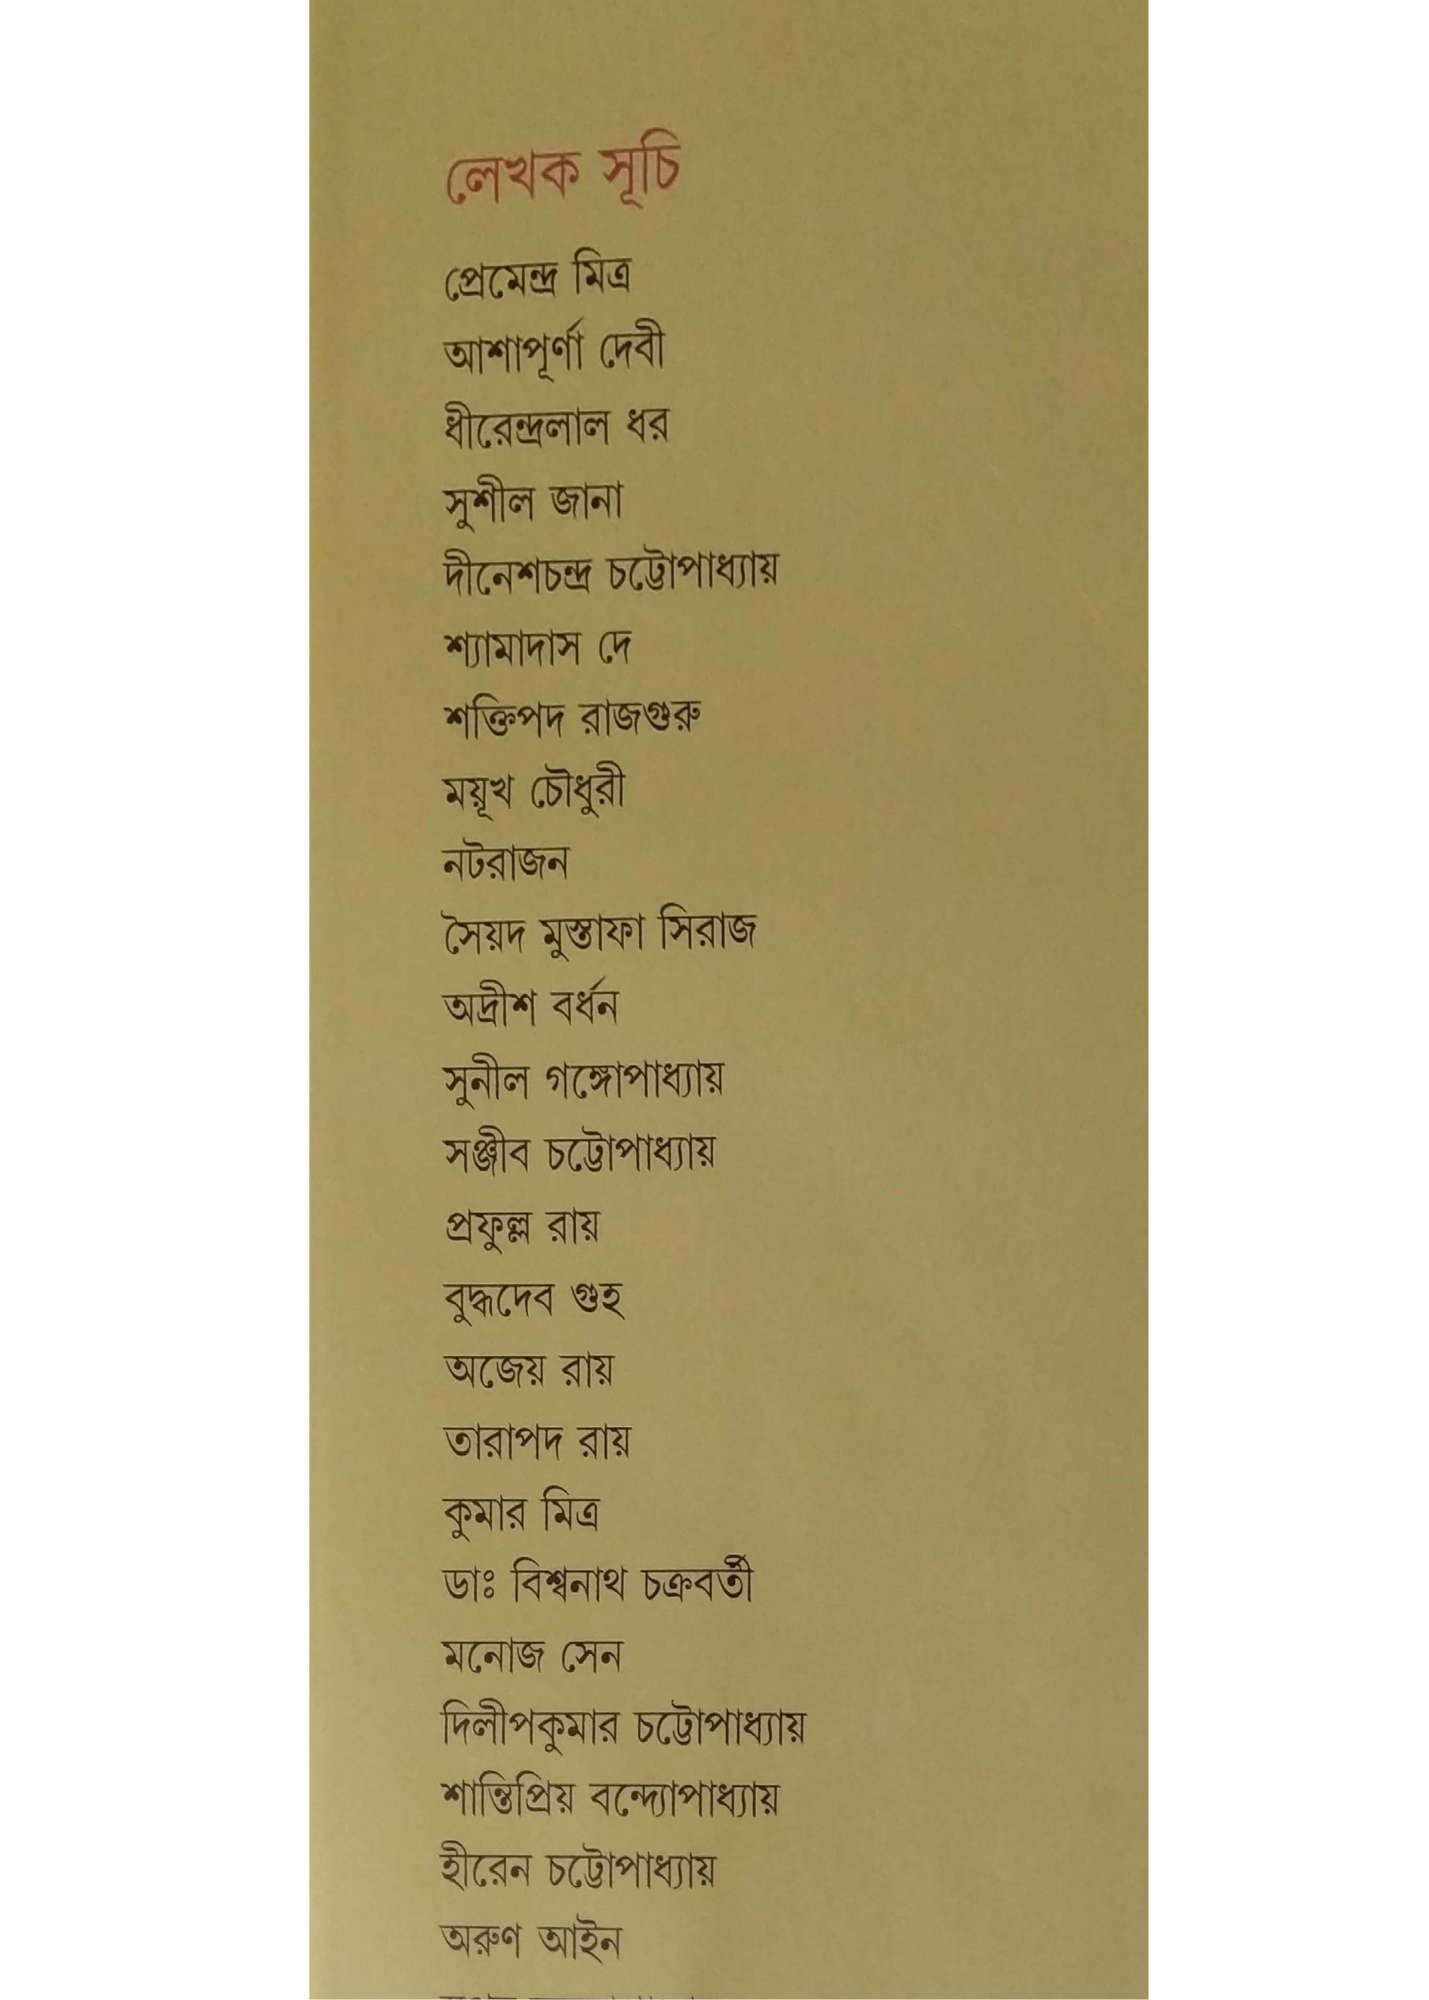 লেখক সূচি
প্রেমেন্দ্র মিত্র
আশাপূর্ণা দেবী
ধীরেন্দ্রলাল ধর
সুশীল জানা
দীনেশচন্দ্র চট্টোপাধ্যায়
শ্যামাদাস দে
শক্তিপদ রাজগুরু
ময়ূখ চৌধুরী
নটরাজন
সৈয়দ মুস্তাফা সিরাজ
অদ্রীশ বর্ধন
সুনীল গঙ্গোপাধ্যায়
সঞ্জীব চট্টোপাধ্যায়
প্রফুল্ল রায়
বুদ্ধদেব গুহ
অজেয় রায়
তারাপদ রায়
কুমার মিত্র
ডাঃ বিশ্বনাথ চক্রবর্তী
মনোজ সেন
দিলীপকুমার চট্টোপাধ্যায়
শান্তিপ্রিয় বন্দ্যোপাধ্যায়
হীরেন চট্টোপাধ্যায়
অরুণ আইন